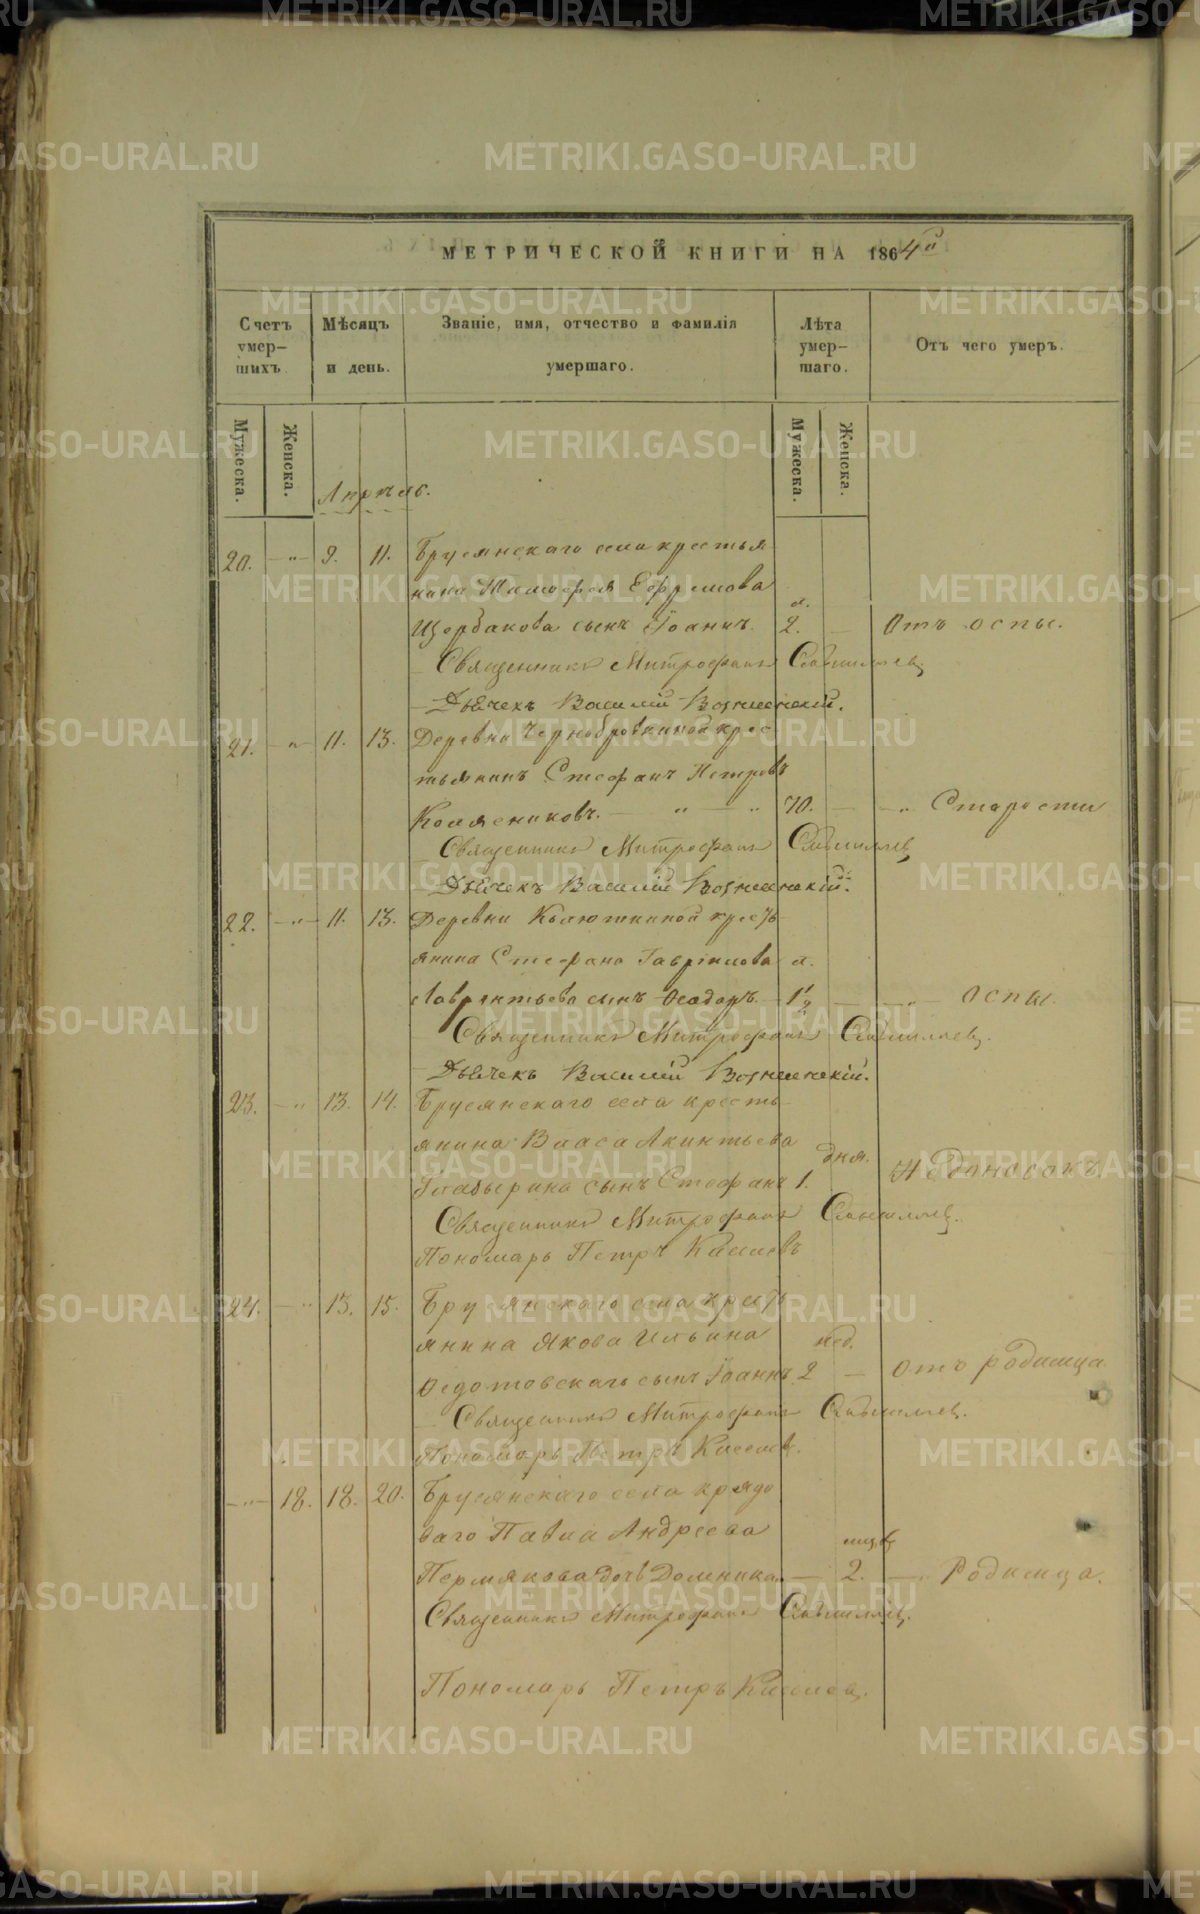 МЕТРИЧЕСКОЙ КНИГИ НА 1864й
Счетъ умер-шихъ.
Мѣсяцъ и день.
Званіе, имя, отчество и фамилія умершаго.
Лѣта умер-шаго.
Отъ чего умеръ.
Мужеска. Женска.
Мужеска. Женска.
Апрѣль.
20. -"- 9. 11. Брусянскаго села крестья
нина Тимофея Ефремова
Щербакова сынъ Іоаннъ. 2. — Отъ оспы.
Священникъ Митрофанъ
Дьячекъ Василій Вознесенскій.
21. -"- 11. 13. Деревни Чернобровкиной крес
тьянинъ Стефанъ Петровъ
Коляениковъ. — " — " 70. — " Старости
Священникъ Митрофанъ
Дьячекъ Василій Вознесенскій.
22. -"- 11. 13. Деревни Колюткиной кресть
янина Стефана Гавриилова
Лаврентьева сынъ Ѳеодоръ. 1 1/2 — " — оспы.
Священникъ Митрофанъ
Дьячекъ Василій Вознесенскій.
23. -"- 13. 14. Брусянскаго села кресть
янина Власа Акинтьева дня.
сынъ Стефанъ 1. Недоносокъ.
Священникъ Митрофанъ
Пономарь Петръ Киселевъ
24. -"- 13. 15. Брусянскаго села кресть
янина Якова Ильина нед.
Ѳедотовскаго сынъ Іоаннъ 2 — отъ родимца
Священникъ Митрофанъ
Пономарь Петръ Киселевъ.
-"- 18. 18. 20. Брусянскаго села крядо
ваго Павла Андреева
Пермякова дочь Домника. — 2. — " Родимца.
Священникъ Митрофанъ
Пономарь Петръ Киселевъ.
METRIKI.GASO-URAL.RU